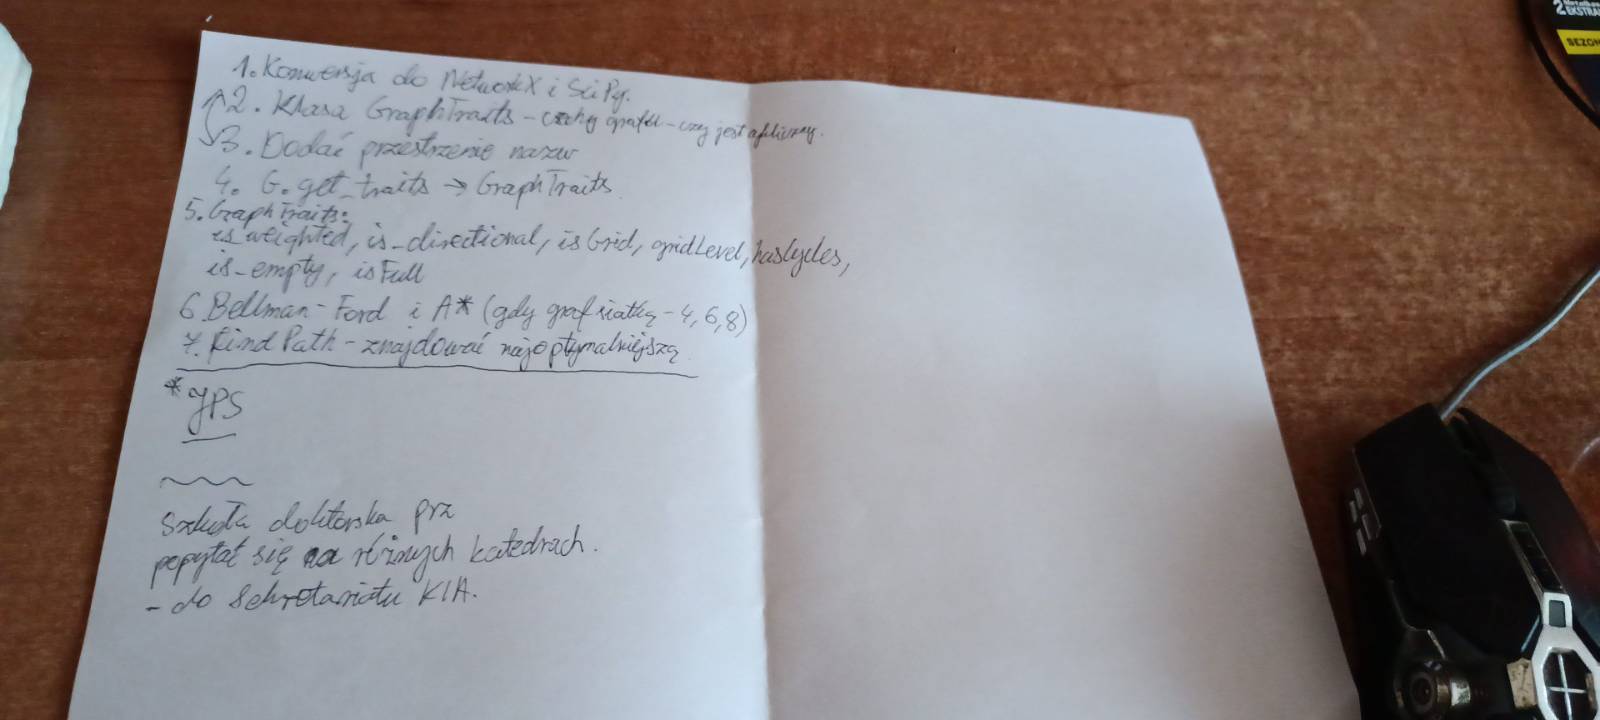 1. Konwersja do NetworkX i SciPy.
2. Klasa GraphTraits - cechy grafu - czy jest cykliczny.
3. Dodać przestrzenie nazw
4. G. get_traits → GraphTraits.
5. GraphTraits:
is_weighted, is_directional, isGrid, gridLevel, hasCycles,
is_empty, isFull
6. Bellman-Ford i A* (gdy graf siatką - 4, 6, 8)
7. FindPath - znajdować najoptymalniejszą
* JPS
Szkoła doktorska prz
popytać się na różnych katedrach.
- do sekretariatu KIA.
2
EKSTRA
SEZON